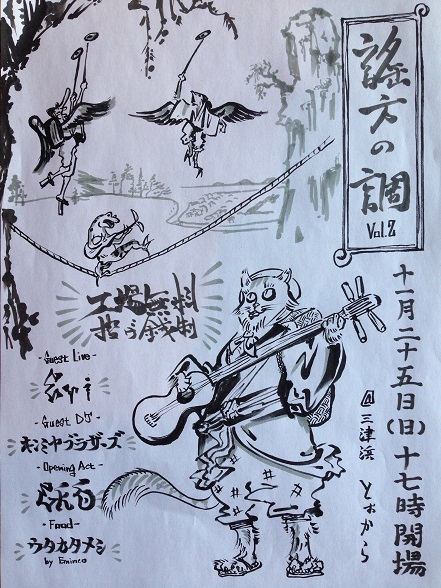 謡方の調
Vol.2
十一月二十五日(日)十七時開場
@三津浜 とぉから
工場無料
投げ銭制
- Guest Live -
- Guest DJ -
キンミヤブラザーズ
- Opening Act -
- Food -
ウタカタメシ
by Eminco